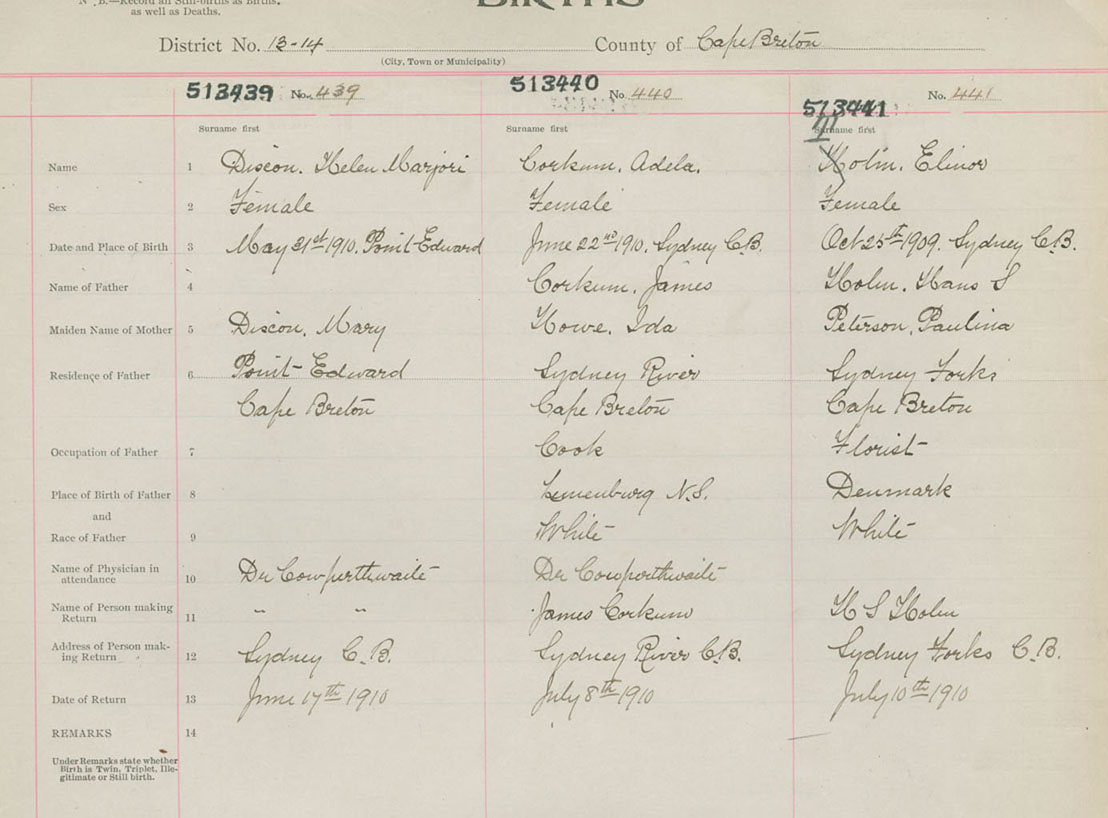 N. B.—Record all Still-births as Births,
as well as Deaths.
BIRTHS
District No. 13-14 County of Cape Breton
(City, Town or Municipality)
513439 No. 439 513440 No 440 513441 No. 441
Surname first Surname first Surname first
Name 1 Discon, Helen Marjori Corkum, Adela. Holm, Elinor
Sex 2 Female Female Female
Date and Place of Birth 3 May 31st 1910. Point Edward June 22nd 1910. Sydney C.B. Oct 25th 1909. Sydney C.B.
Name of Father 4 Corkum, James Holm, Hans S
Maiden Name of Mother 5 Discon, Mary Howe, Ida Peterson, Paulina
Residence of Father 6 Point Edward Sydney River Sydney Forks
Cape Breton Cape Breton Cape Breton
Occupation of Father 7 Cook Florist
Place of Birth of Father 8 Lunenburg N.S. Denmark
and
Race of Father 9 White White
Name of Physician in
attendance 10 Dr Cowperthwaite Dr Cowperthwaite
Name of Person making
Return 11 " " James Corkum H S Holm
Address of Person mak-
ing Return 12 Sydney C.B. Sydney River C.B. Sydney Forks C.B.
Date of Return 13 June 17th 1910 July 8th 1910 July 10th 1910
REMARKS 14
Under Remarks state whether
Birth is Twin, Triplet, Ille-
gitimate or Still birth.